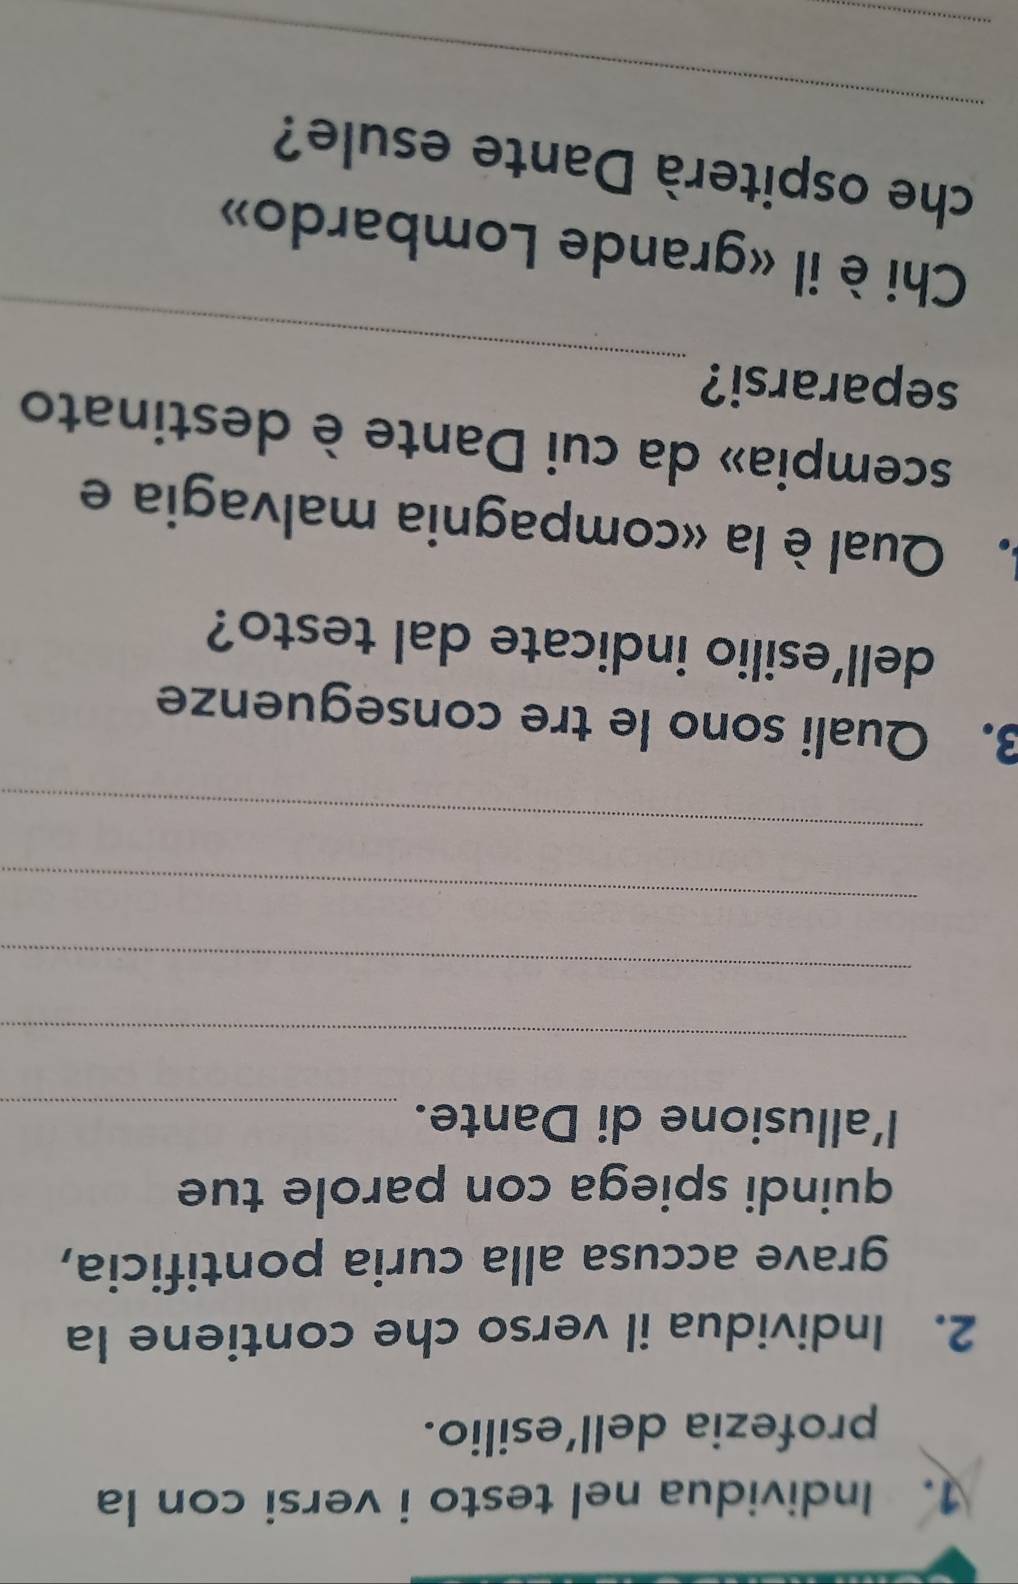 1. Individua nel testo i versi con la
profezia dell'esilio.
2. Individua il verso che contiene la
grave accusa alla curia pontificia,
quindi spiega con parole tue
l'allusione di Dante.
3. Quali sono le tre conseguenze
dell'esilio indicate dal testo?
Qual è la «compagnia malvagia e
scempia» da cui Dante è destinato
separarsi?
Chi è il «grande Lombardo»
che ospiterà Dante esule?